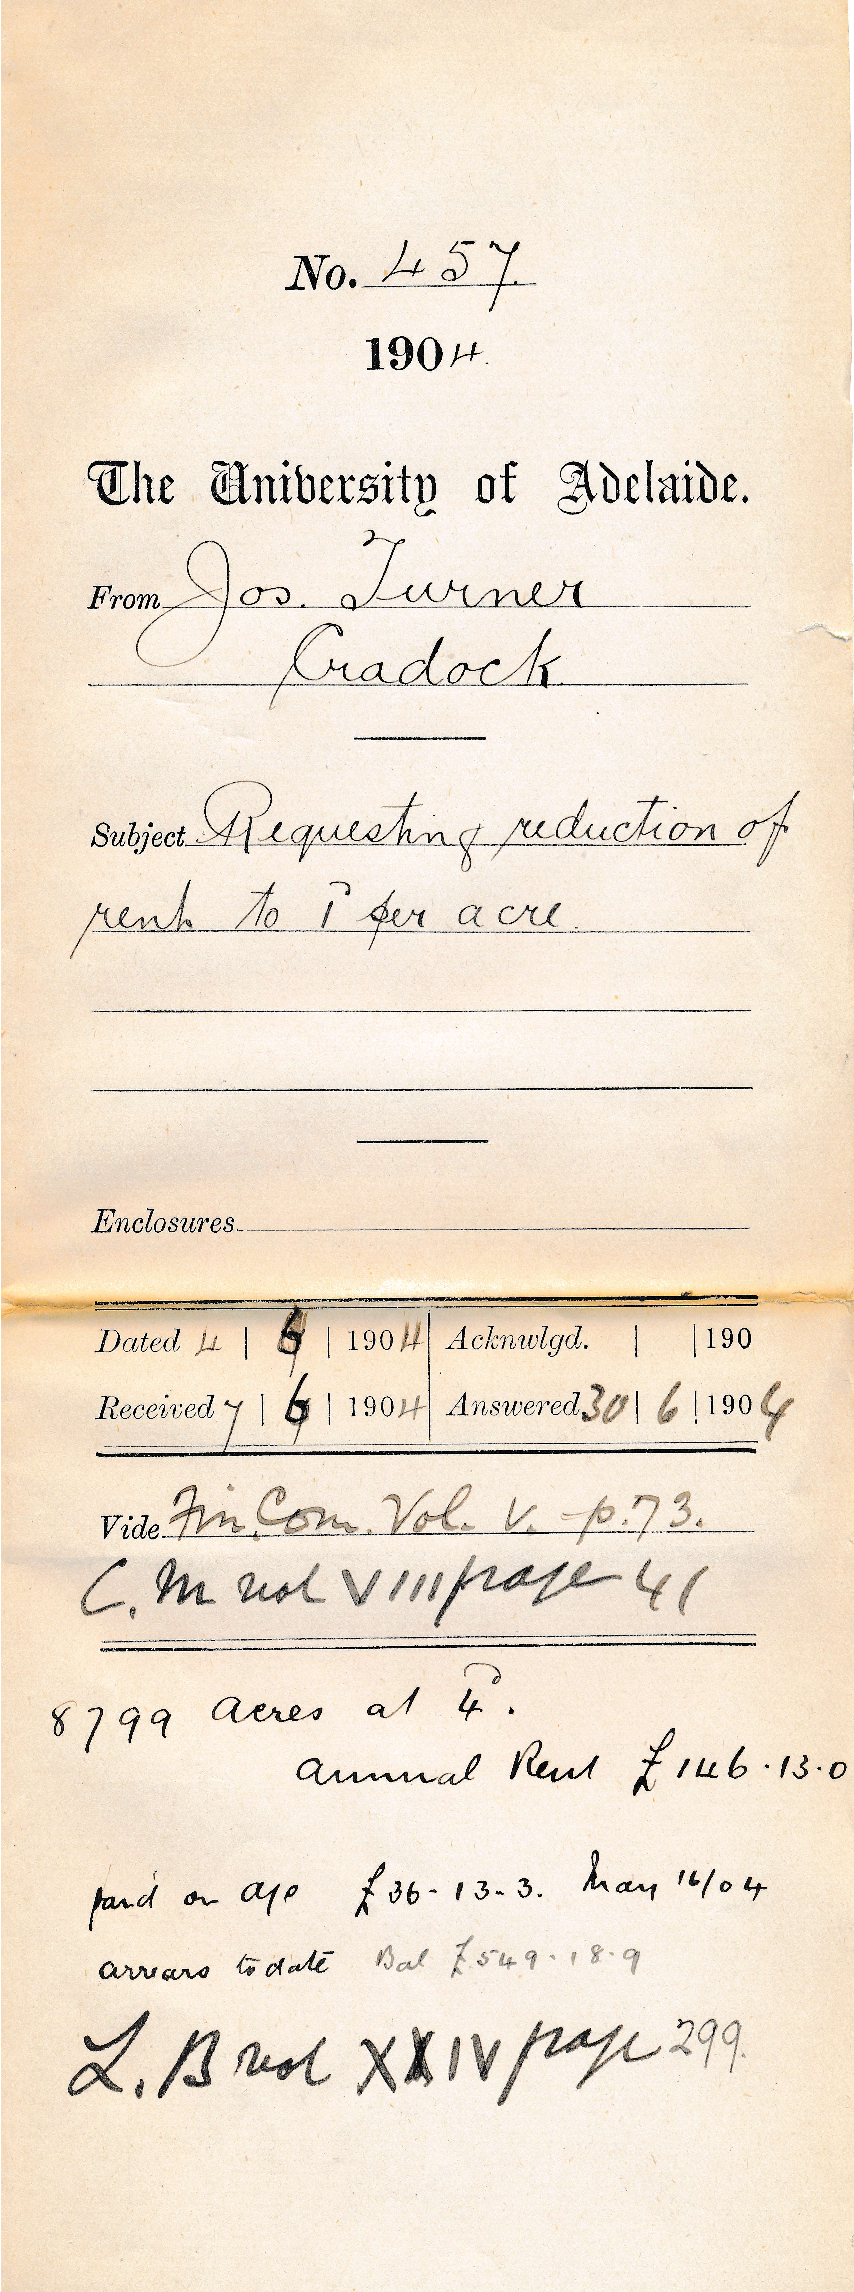 No. 457.
1904.
The University of Adelaide.
From Jos. Turner
Cradock
Subject Requesting reduction of
rent to 1ᵈ per acre.
Enclosures
Dated 4 | 6 | 1904 | Acknwlgd. | | 190
Received 7 | 6 | 1904 | Answered 30 | 6 | 1904
Vide Fin. Com. Vol. V. p. 73.
C. M vol VIII page 41
8799 acres at 4ᵈ.
annual Rent £146.13.0
paid on a/c £36-13-3. May 16/04
arrears to date Bal £549.18.9
L. B vol XXIV page 299.